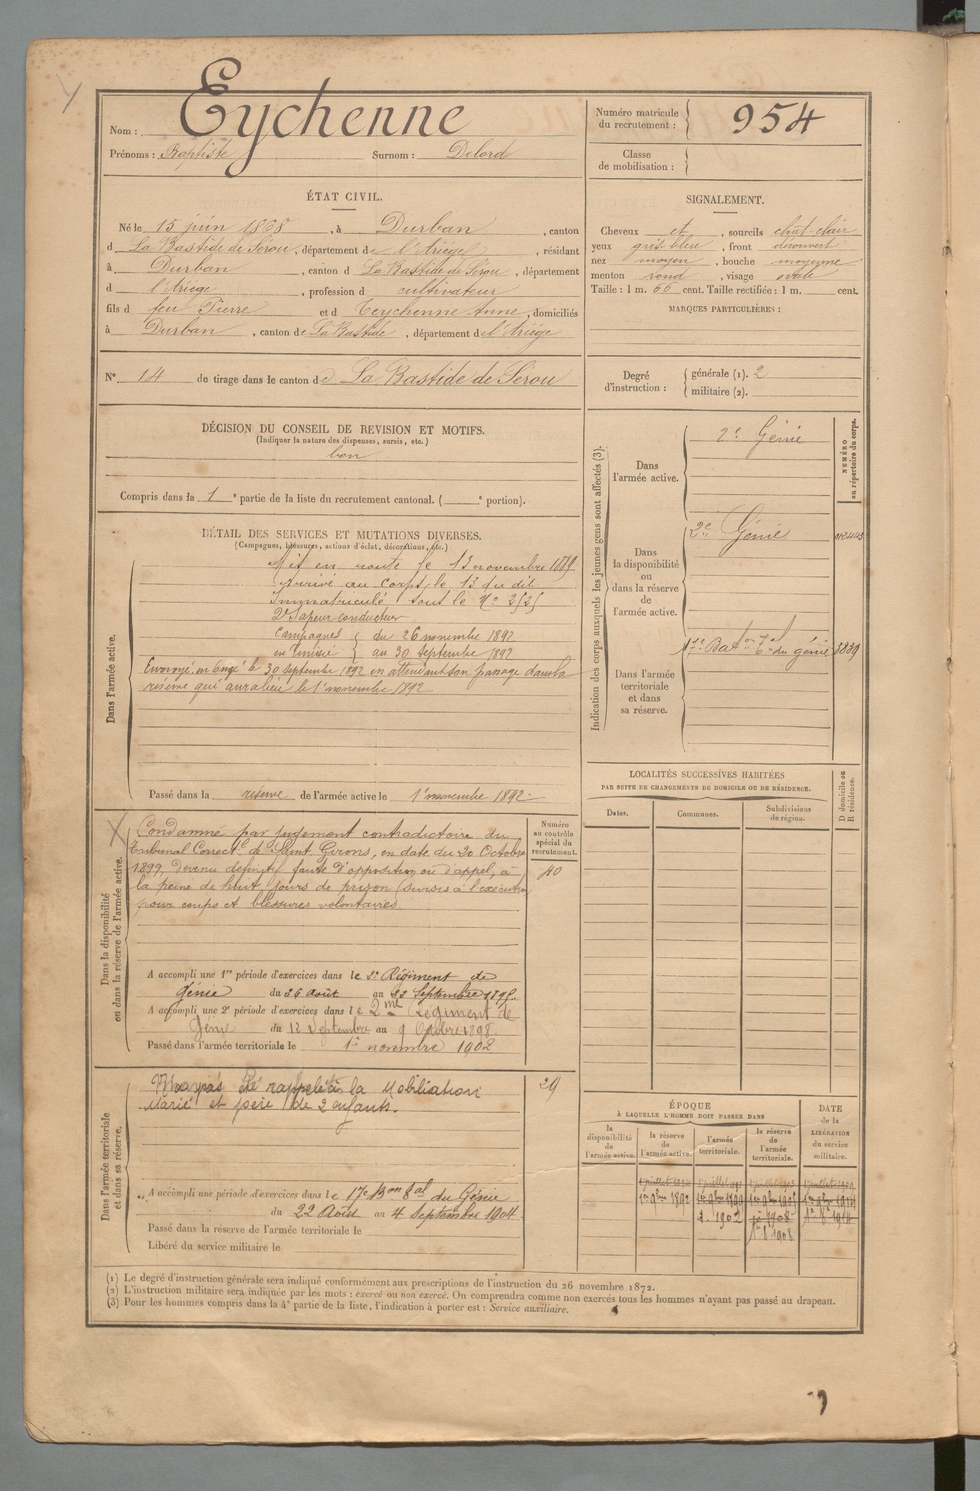 Nom : Eychenne
Prénoms : Baptiste Surnom : Delord
Numéro matricule du recrutement : 954
Classe de mobilisation :
ÉTAT CIVIL.
Né le 15 juin 1868, à Durban, canton
d La Bastide de Sérou, département de l'Ariège, résidant
à Durban, canton d La Bastide de Sérou, département
d l'Ariège, profession d cultivateur
fils d feu Pierre et d Teychenne Anne, domiciliés
à Durban, canton de La Bastide, département de l'Ariège
N° 14 de tirage dans le canton de La Bastide de Serou
SIGNALEMENT.
Cheveux et, sourcils chat-clair
yeux gris bleu, front découvert
nez moyen, bouche moyenne
menton rond, visage ovale
Taille : 1 m. 66 cent. Taille rectifiée : 1 m. cent.
MARQUES PARTICULIÈRES :
Degré d'instruction : générale (1). 2
militaire (2).
DÉCISION DU CONSEIL DE REVISION ET MOTIFS.
(Indiquer la nature des dispenses, sursis, etc.)
bon
Compris dans la 1e partie de la liste du recrutement cantonal. ( e portion).
DÉTAIL DES SERVICES ET MUTATIONS DIVERSES.
(Campagnes, blessures, actions d'éclat, décorations, etc.)
Dans l'armée active.
Mis en route le 13 novembre 1889
Arrivé au corps le 13 du dit
Immatriculé sous le N°
2e Sapeur conducteur
Campagnes du 26 novembre 1892
en Tunisie au 30 septembre 1892
Envoyé en congé le 30 septembre 1892 en attendant son passage dans la
réserve qui aura lieu le 1er novembre 1892
Passé dans la reserve de l'armée active le 1er novembre 1892
Indication des corps auxquels les jeunes gens sont affectés (3).
NUMÉRO au répertoire du corps.
Dans l'armée active.
2e Génie
Dans la disponibilité ou dans la réserve de l'armée active.
2e Génie
Dans l'armée territoriale et dans sa réserve.
du génie 3839
LOCALITÉS SUCCESSIVES HABITÉES
PAR SUITE DE CHANGEMENTS DE DOMICILE OU DE RÉSIDENCE.
Dates. Communes. Subdivisions de région. D domicile ou R résidence.
Dans la disponibilité ou dans la réserve de l'armée active.
Numéro au contrôle spécial du recrutement.
40
Condamné par jugement contradictoire du
Tribunal Correctel de Saint Girons, en date du 20 Octobre
1899, devenu définitif faute d'opposition ou d'appel, à
la peine de huit jours de prison (sursis à l'exécution)
pour coups et blessures volontaires
A accompli une 1re période d'exercices dans le 2e Régiment de
Génie du 26 Août au 22 Septembre 1895.
A accompli une 2e période d'exercices dans le 2me Régiment de
Génie du 12 Septembre au 9 Octobre 1898
Passé dans l'armée territoriale le 1er novembre 1902
Dans l'armée territoriale et dans sa réserve.
29
N'a pas été rappelé à la Mobilisation
Marié et père de 2 enfants.
A accompli une période d'exercices dans le 17e Bon du Génie
du 22 Août au 4 Septembre 1904
Passé dans la réserve de l'armée territoriale le
Libéré du service militaire le
ÉPOQUE
À LAQUELLE L'HOMME DOIT PASSER DANS
la disponibilité de l'armée active. la réserve de l'armée active. l'armée territoriale. la réserve de l'armée territoriale.
DATE de la LIBÉRATION du service militaire.
1er 9bre 1892 1er 9bre 1899
1902 1908
1908
(1) Le degré d'instruction générale sera indiqué conformément aux prescriptions de l'instruction du 26 novembre 1872.
(2) L'instruction militaire sera indiquée par les mots : exercé ou non exercé. On comprendra comme non exercés tous les hommes n'ayant pas passé au drapeau.
(3) Pour les hommes compris dans la 4e partie de la liste, l'indication à porter est : Service auxiliaire.